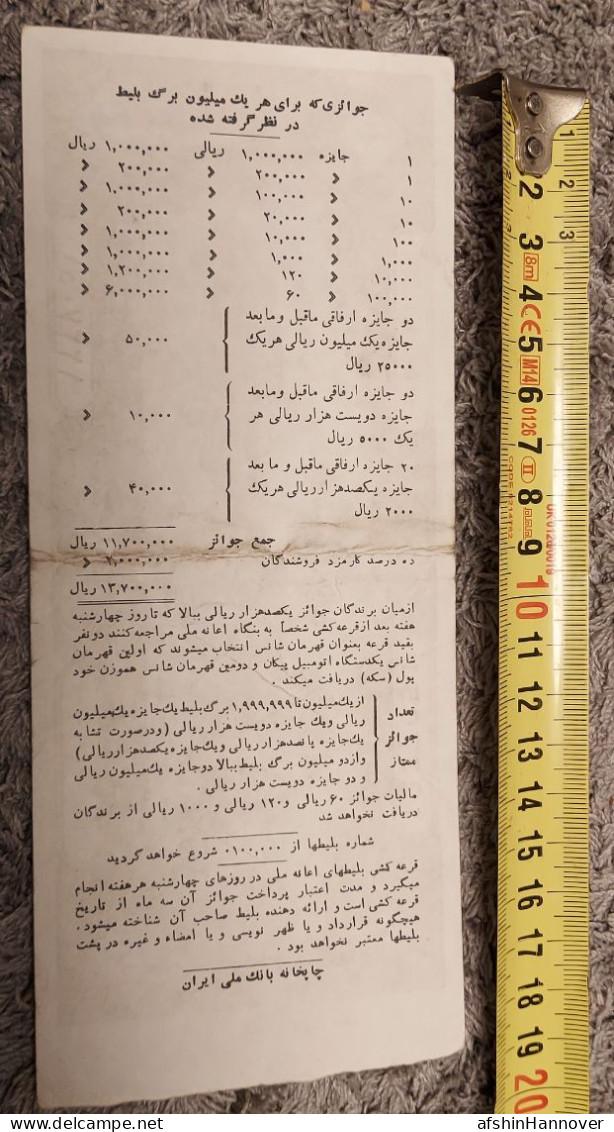 جوائزی که برای هر یك میلیون برگ بلیط
در نظر گرفته شده
۱ جایزه ۱,۰۰۰,۰۰۰ ریالی ۱,۰۰۰,۰۰۰ ریال
۱ » ۲۰۰,۰۰۰ » ۲۰۰,۰۰۰ »
۱۰ » ۱۰۰,۰۰۰ » ۱,۰۰۰,۰۰۰ »
۱۰ » ۲۰,۰۰۰ » ۲۰۰,۰۰۰ »
۱۰۰ » ۱۰,۰۰۰ » ۱,۰۰۰,۰۰۰ »
۱,۰۰۰ » ۱,۰۰۰ » ۱,۰۰۰,۰۰۰ »
۱۰,۰۰۰ » ۱۲۰ » ۱,۲۰۰,۰۰۰ »
۱۰۰,۰۰۰ » ۶۰ » ۶,۰۰۰,۰۰۰ »
دو جایزه ارفاقی ماقبل و ما بعد
جایزه یك میلیون ریالی هر یك ۵۰,۰۰۰ »
۲۵۰۰۰ ریال
دو جایزه ارفاقی ماقبل و ما بعد
جایزه دویست هزار ریالی هر ۱۰,۰۰۰ »
یك ۵۰۰۰ ریال
۲۰ جایزه ارفاقی ماقبل و ما بعد
جایزه یکصد هزار ریالی هر یك ۴۰,۰۰۰ »
۲۰۰۰ ریال
جمع جوائز ۱۱,۷۰۰,۰۰۰ ریال
ده درصد کارمزد فروشندگان ۲,۰۰۰,۰۰۰ »
۱۳,۷۰۰,۰۰۰ ریال
از میان برندگان جوائز یکصد هزار ریالی ببالا که تا روز چهارشنبه
هفته بعد از قرعه کشی شخصاً به بنگاه اعانه ملی مراجعه کنند دو نفر
بقید قرعه بعنوان قهرمان شانس انتخاب میشوند که اولین قهرمان
شانس یکدستگاه اتومبیل پیکان و دومین قهرمان شانس هموزن خود
پول (سکه) دریافت میکند .
از یك میلیون تا ۱,۹۹۹,۹۹۹ برگ بلیط یك جایزه یك میلیون
تعداد ریالی و یك جایزه دویست هزار ریالی (و در صورت تشابه
جوائز یك جایزه پانصد هزار ریالی و یك جایزه یکصد هزار ریالی)
ممتاز و از دو میلیون برگ بلیط ببالا دو جایزه یك میلیون ریالی
و دو جایزه دویست هزار ریالی .
مالیات جوائز ۶۰ ریالی و ۱۲۰ ریالی و ۱۰۰۰ ریالی از برندگان
دریافت نخواهد شد
شماره بلیطها از ۰۱۰۰,۰۰۰ شروع خواهد گردید
قرعه کشی بلیطهای اعانه ملی در روزهای چهارشنبه هر هفته انجام
میگیرد و مدت اعتبار پرداخت جوائز آن سه ماه از تاریخ
قرعه کشی است و ارائه دهنده بلیط صاحب آن شناخته میشود .
هیچگونه قرارداد و یا ظهر نویسی و یا امضاء و غیره در پشت
بلیطها معتبر نخواهد بود .
چاپخانه بانك ملی ایران
1
2
3
2
3
8m
4
CE
5
M14
0126
6
7
II
8
9
10
11
12
13
14
15
16
17
18
19
20
afshinHannover